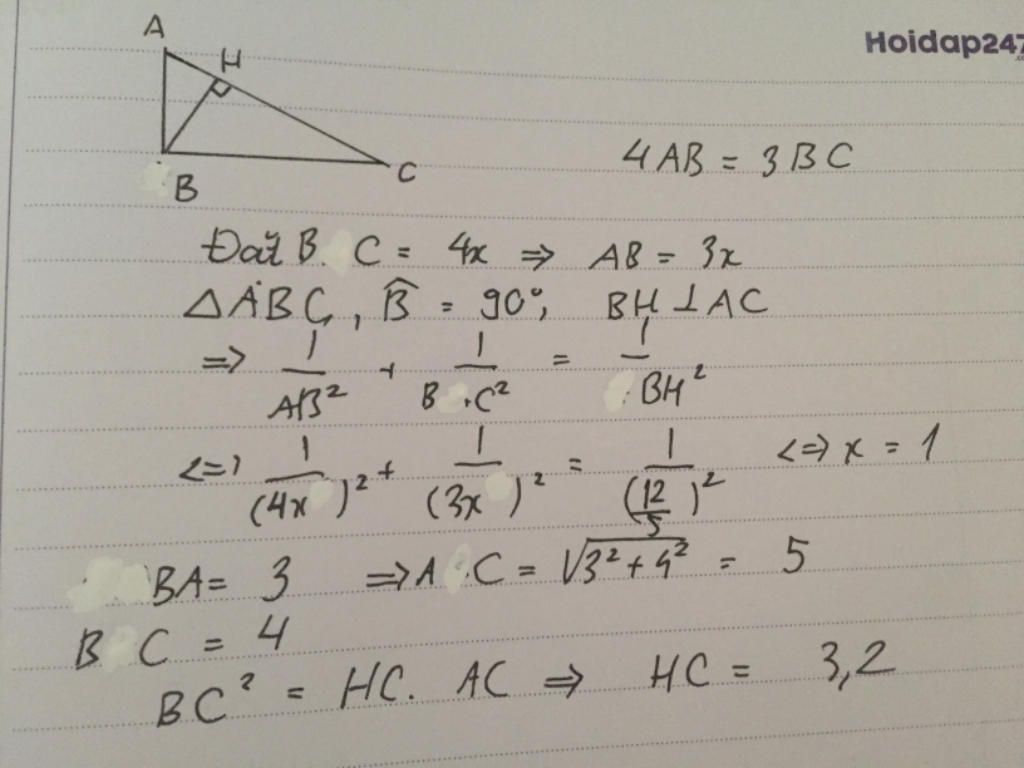 A
H
Hoidap247
.com
B
C
4AB = 3BC
Đặt B C = 4x => AB = 3x
ΔABC, B̂ = 90°, BH ⊥ AC
=> 1/AB² + 1/B.C² = 1/BH²
<=> 1/(4x)² + 1/(3x)² = 1/(12/5)² <=> x = 1
BA = 3 => A C = √3² + 4² = 5
B C = 4
BC² = HC. AC => HC = 3,2